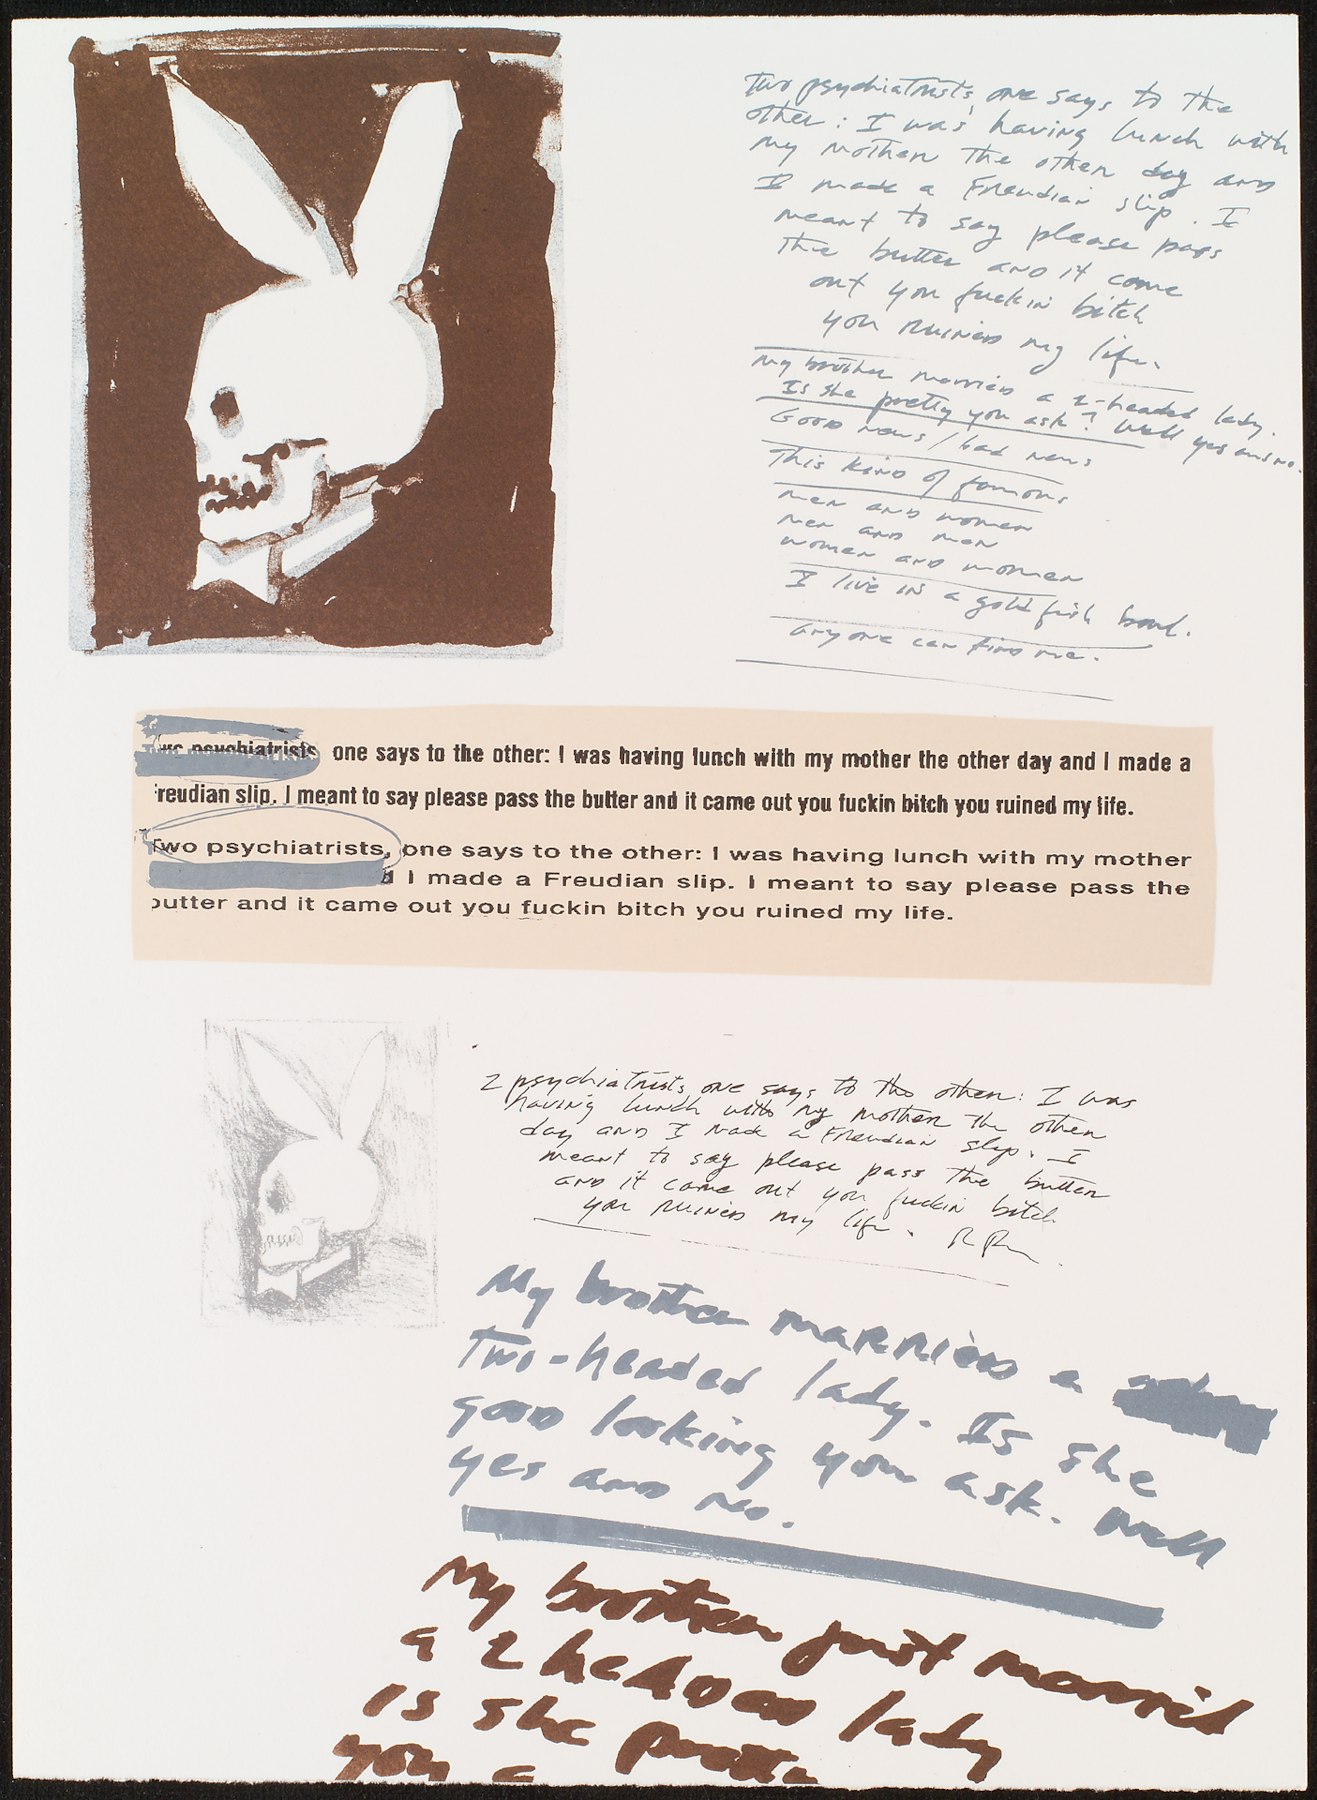 Two psychiatrists, one says to the
other: I was having lunch with
my mother the other day and
I made a Freudian slip. I
meant to say please pass
the butter and it came
out you fuckin bitch
you ruined my life.
My brother married a 2-headed lady.
Is she pretty you ask? Well yes and no.
Good news/bad news
This kind of famous
men and women
men and men
women and women
I live in a goldfish bowl.
anyone can find me.
wo psychiatrists one says to the other: I was having lunch with my mother the other day and I made a
reudian slip. I meant to say please pass the butter and it came out you fuckin bitch you ruined my life.
Two psychiatrists, one says to the other: I was having lunch with my mother
d I made a Freudian slip. I meant to say please pass the
butter and it came out you fuckin bitch you ruined my life.
2 psychiatrists, one says to the other: I was
having lunch with my mother the other
day and I made a Freudian slip. I
meant to say please pass the butter
and it came out you fuckin bitch
you ruined my life.
My brother married a
two-headed lady. Is she
good looking you ask. Well
yes and no.
My brother just married
a 2 headed lady
is she
you a